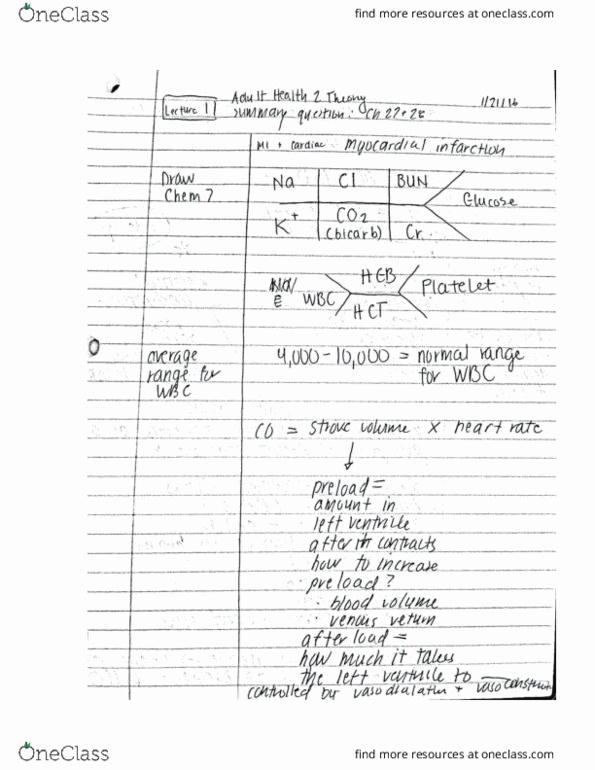 OneClass
find more resources at oneclass.com
Lecture 1
Adult Health 2 Theory
1/21/16
summary question: Ch 27+28
MI + cardiac Myocardial infarction
Draw
Chem 7
Na Cl BUN
Glucose
K+ CO2
(bicarb) Cr.
HGB
WBC Platelet
HCT
average
range for
WBC
4,000-10,000 = normal range
for WBC
CO = strove volume x heart rate
preload =
amount in
left ventricle
after it contracts
how to increase
preload?
· blood volume
· venous return
afterload =
how much it takes
the left ventricle to
controlled by vasodialation + vasoconstrict
OneClass
find more resources at oneclass.com